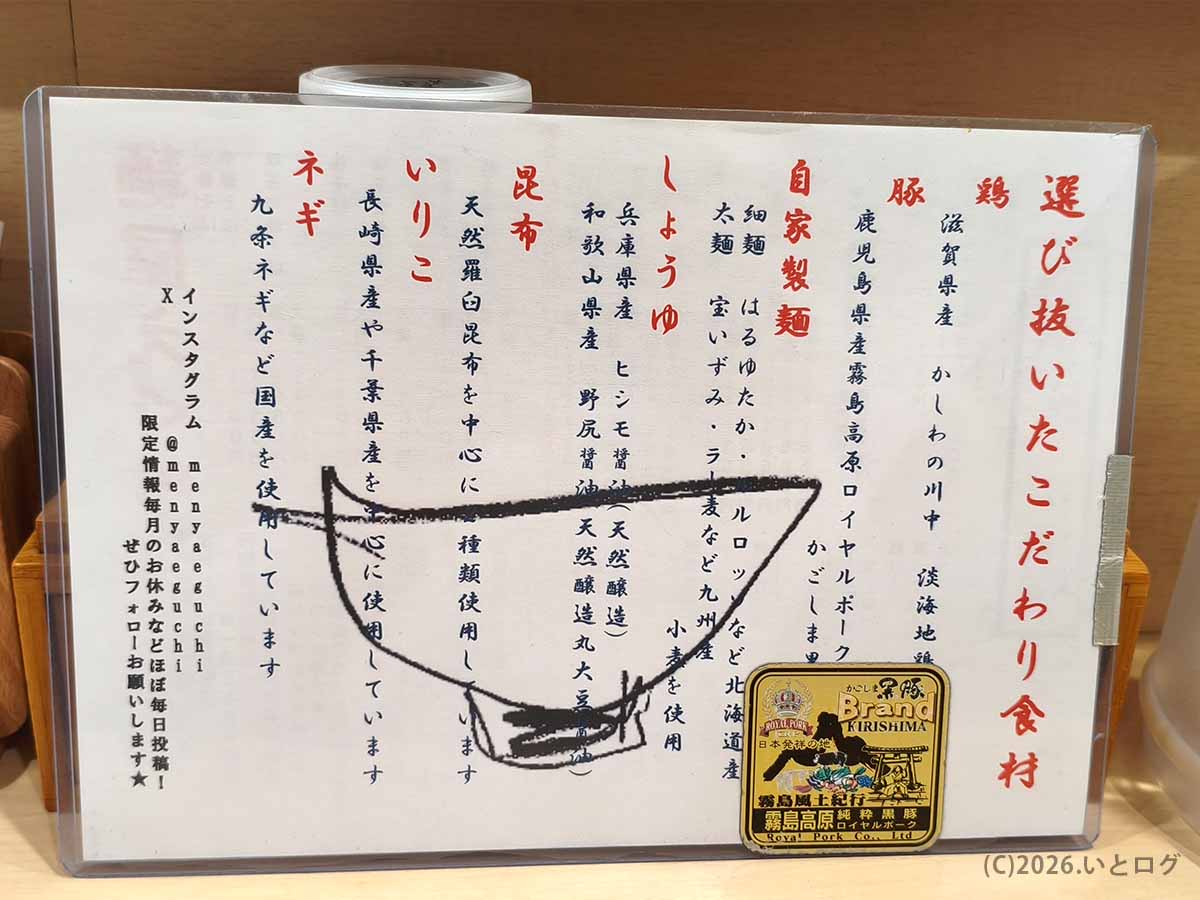 選び抜いたこだわり食材
鶏
滋賀県産 かしわの川中 淡海地鶏
豚
鹿児島県産霧島高原ロイヤルポーク
かごしま黒
自家製麺
細麺 はるゆたか・ ルロッ など北海道産
太麺 宝いずみ・ラー麦など九州産
小麦を使用
しょうゆ
兵庫県産 ヒシモ醤油(天然醸造)
和歌山県産 野尻醤油(天然醸造丸大豆醤油)
昆布
天然羅臼昆布を中心に 種類使用しています
いりこ
長崎県産や千葉県産を中心に使用しています
ネギ
九条ネギなど国産を使用しています
インスタグラム menyaeguchi
X @menyaeguchi
限定情報毎月のお休みなどほぼ毎日投稿!
ぜひフォローお願いします★
かごしま黒豚
Brand
KIRISHIMA
ROYAL PORK
日本発祥の地
霧島風土紀行
霧島高原 純粋黒豚
ロイヤルポーク
Royal Pork Co., Ltd
(C)2026.いとログ